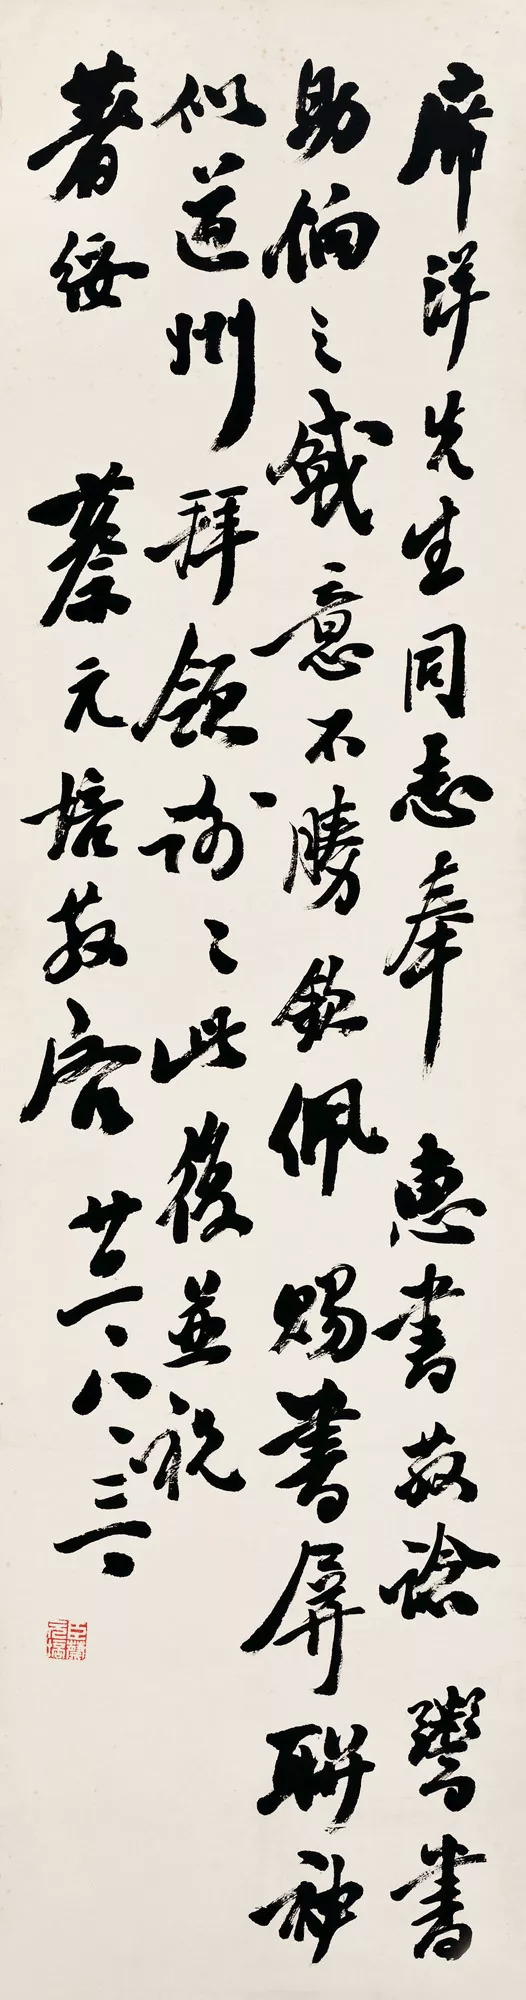 席洋先生同志奉惠书敬谂鬻書
助饷之盛意不勝欽佩賜書屏聯神
似道州拜領謝〻此後並祝
著綏 蔡元培敬啓 廿一、八、三一